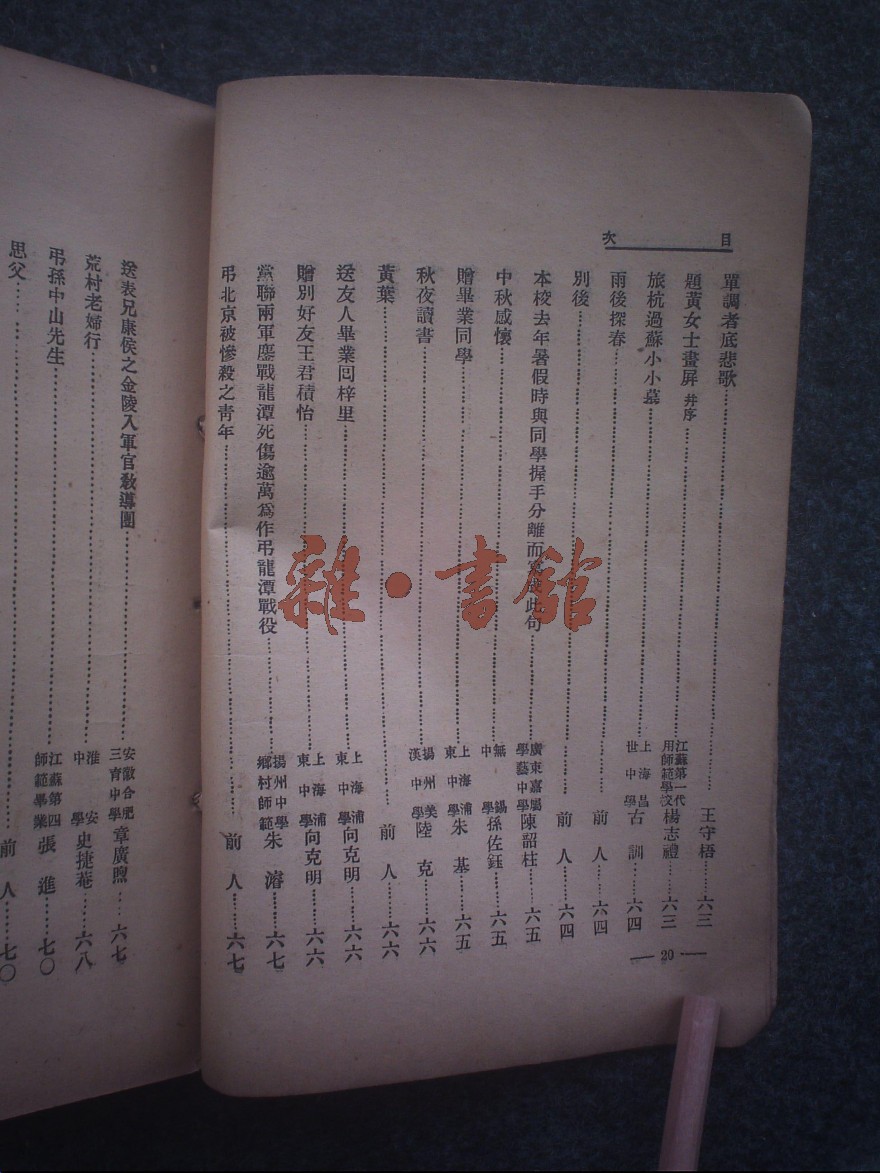 目次
單調者底悲歌……王守梧……六三
題黃女士畫屏 并序……江蘇第一代用師範學校 楊志禮……六三
旅杭過蘇小小墓……上海昌世中學 古訓……六四
雨後探春……前人……六四
別後……前人……六四
本校去年暑假時與同學握手分離而寫成此句……廣東嘉屬學藝中學 陳韶柱……六五
中秋感懷……無錫中學 孫佐鈺……六五
贈畢業同學……上海浦東中學 朱基……六五
秋夜讀書……揚州美漢中學 陸克……六六
黃葉……前人……六六
送友人畢業囘梓里……上海浦東中學 向克明……六六
贈別好友王君積怡……上海浦東中學 向克明……六六
黨聯兩軍鏖戰龍潭死傷逾萬爲作弔龍潭戰役……揚州中學鄉村師範 朱溶……六七
弔北京被慘殺之靑年……前人……六七
20
送表兄康侯之金陵入軍官敎導團……安徽合肥三育中學 章廣煦……六七
荒村老婦行……淮安中學 史捷菴……六八
弔孫中山先生……江蘇第四師範畢業 張進……七〇
思父……前人……七〇
雜·書館